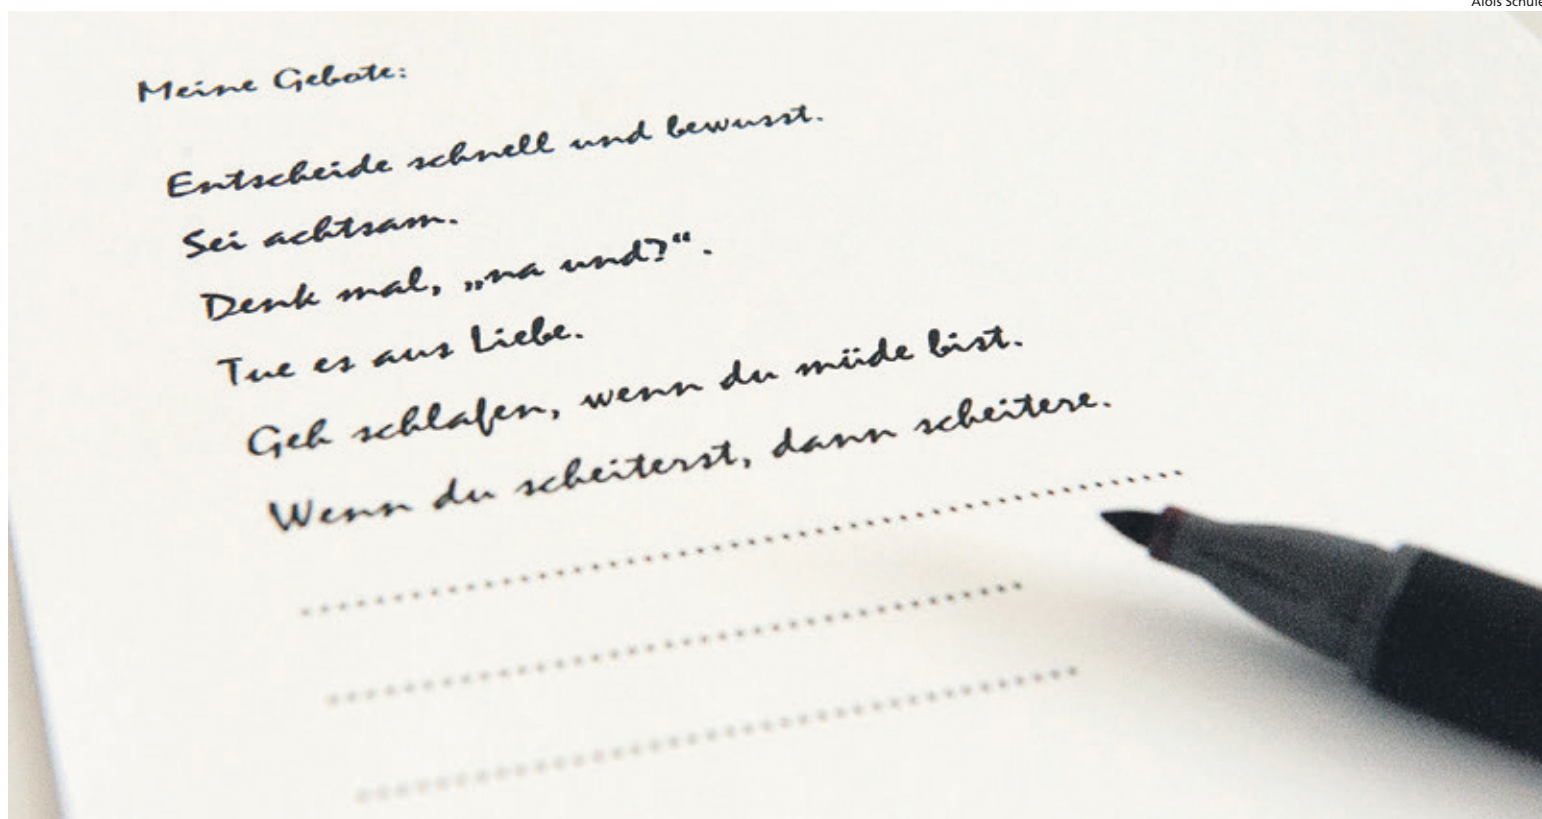 Alois Schule
Meine Gebote:
Entscheide schnell und bewusst.
Sei achtsam.
Denk mal, „na und?“.
Tue es aus Liebe.
Geh schlafen, wenn du müde bist.
Wenn du scheiterst, dann scheitere.